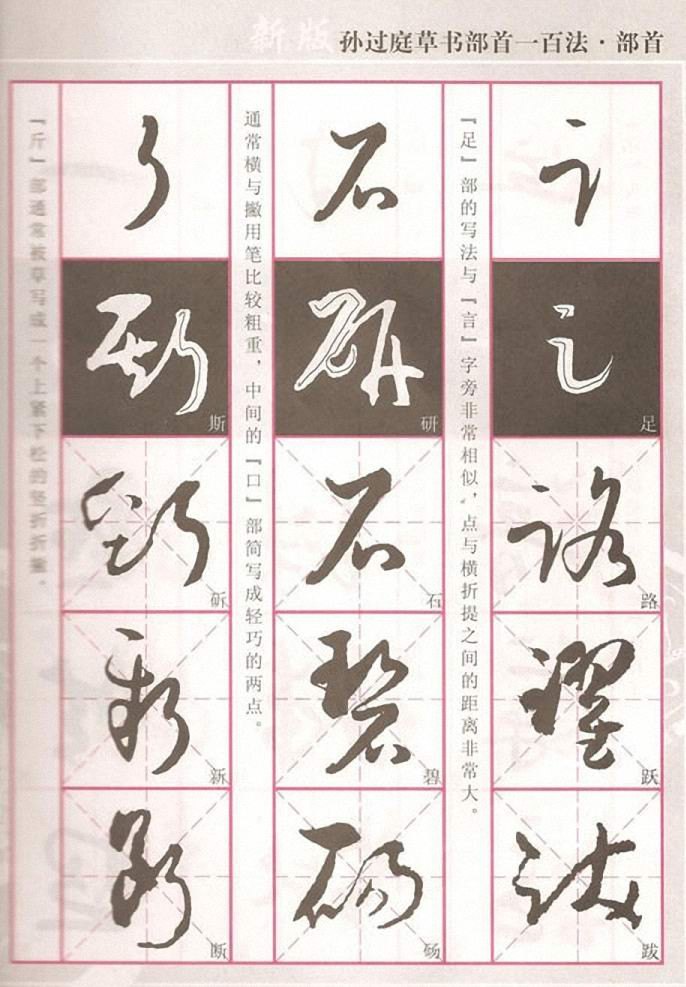 新版 孙过庭草书部首一百法·部首
足
路
跃
跋
『足』部的写法与『言』字旁非常相似，点与横折提之间的距离非常大。
石
研
石
碧
砀
通常横与撇用笔比较粗重，中间的『口』部简写成轻巧的两点。
斯
斫
新
断
『斤』部通常被草写成一个上紧下松的竖折折撇。